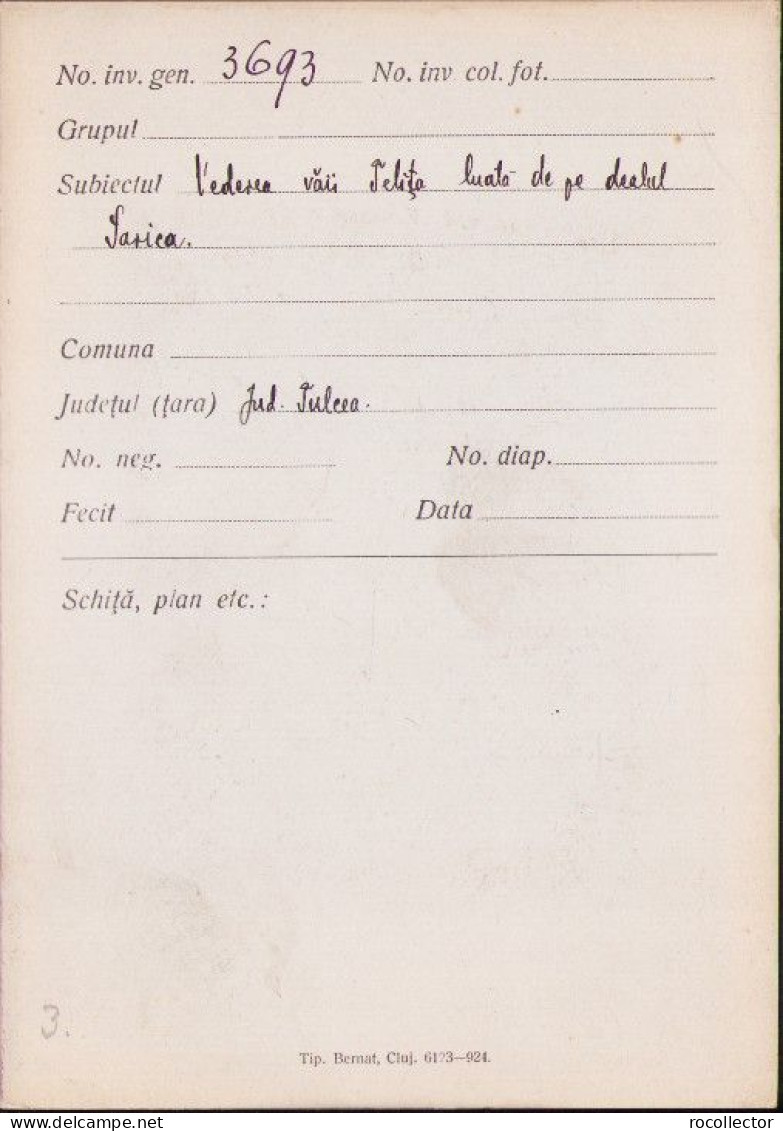 No. inv. gen. 3693 No. inv col. fot.
Grupul
Subiectul Vederea văii Teliţa luată de pe dealul
Sarica.
Comuna
Judeţul (ţara) Jud. Tulcea.
No. neg. No. diap.
Fecit Data
Schiţă, plan etc.:
3.
Tip. Bernat, Cluj. 6123—924.
delcampe.net
rocollector